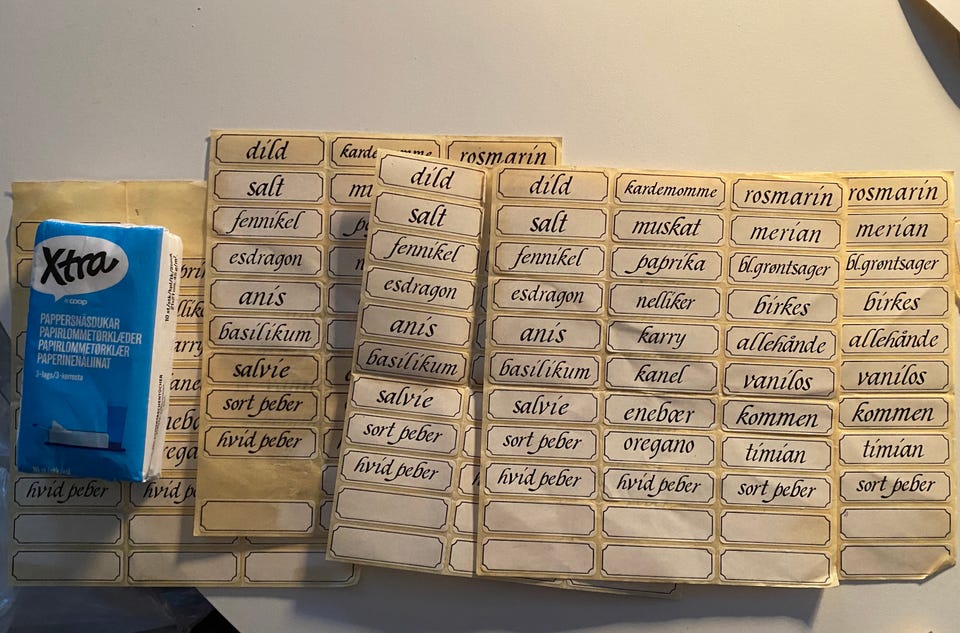 Xtra
coop
PAPPERSNÄSDUKAR
PAPIRLOMMETØRKLÆDER
PAPIRLOMMETØRKLÆR
PAPERINENÄLIINAT
3-lags/3-kerrosta
hvid peber
dild rosmarin
salt
fennikel
esdragon
anis
basilikum
salvie
sort peber
hvid peber
dild
salt
fennikel
esdragon
anis
basilikum
salvie
sort peber
hvid peber
dild kardemomme rosmarin rosmarin
salt muskat merian merian
fennikel paprika bl.grøntsager bl.grøntsager
esdragon nelliker birkes birkes
anis karry allehånde allehånde
basilikum kanel vanilos vanilos
salvie enebær kommen kommen
sort peber oregano timian timian
hvid peber hvid peber sort peber sort peber